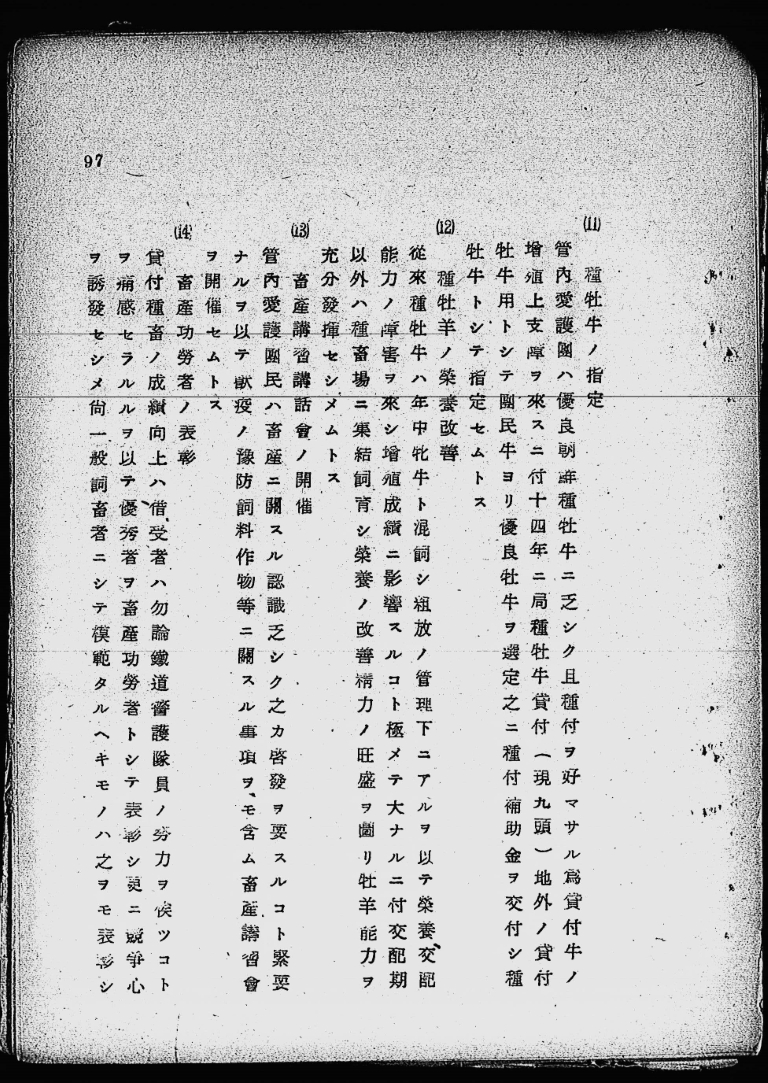 97
(11) 種牡牛ノ指定
管內愛護團ハ優良朝鮮種牡牛ニ乏シク且種付ヲ好マサル爲貸付牛ノ
增殖上支障ヲ來スニ付十四年ニ局種牡牛貸付(現九頭)地外ノ貸付
牡牛用トシテ團民牛ヨリ優良牡牛ヲ選定之ニ種付補助金ヲ交付シ種
牡牛トシテ指定セムトス
(12) 種牡羊ノ榮養改善
從來種牡牛ハ年中牝牛ト混飼シ粗放ノ管理下ニアルヲ以テ榮養交配
能力ノ障害ヲ來シ增殖成績ニ影響スルコト極メテ大ナルニ付交配期
以外ハ種畜場ニ集結飼育シ榮養ノ改善精力ノ旺盛ヲ圖リ牡羊能力ヲ
充分發揮セシメムトス
(13) 畜產講習講話會ノ開催
管內愛護團民ハ畜產ニ關スル認識乏シク之カ啓發ヲ要スルコト緊要
ナルヲ以テ獸疫ノ豫防飼料作物等ニ關スル事項ヲモ含ム畜產講習會
ヲ開催セムトス
(14) 畜產功勞者ノ表彰
貸付種畜ノ成績向上ハ借受者ハ勿論鐵道警護隊員ノ努力ヲ俟ツコト
ヲ痛感セラルルヲ以テ優秀者ヲ畜產功勞者トシテ表彰シ更ニ競爭心
ヲ誘發セシメ尙一般飼畜者ニシテ模範タルヘキモノハ之ヲモ表彰シ